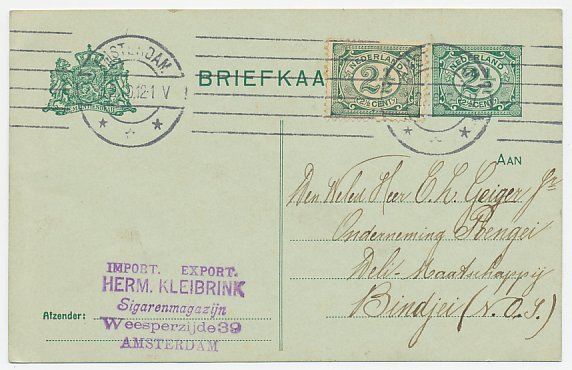 AMSTERDAM
12-1 V
BRIEFKAA
NEDERLAND
2½
2½ CENT
NEDERLAND
2½
2½ CENT
AAN
Den Weled Heer E. L. Geiger Jr.
Onderneming Rengei
Deli-Maatschappij
Bindjei (N.O.I.)
IMPORT. EXPORT.
HERM. KLEIBRINK
Sigarenmagazijn
Afzender:
Weesperzijde 39
AMSTERDAM